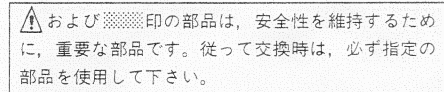 ⚠および▒印の部品は，安全性を維持するため
に，重要な部品です。従って交換時は，必ず指定の
部品を使用して下さい。